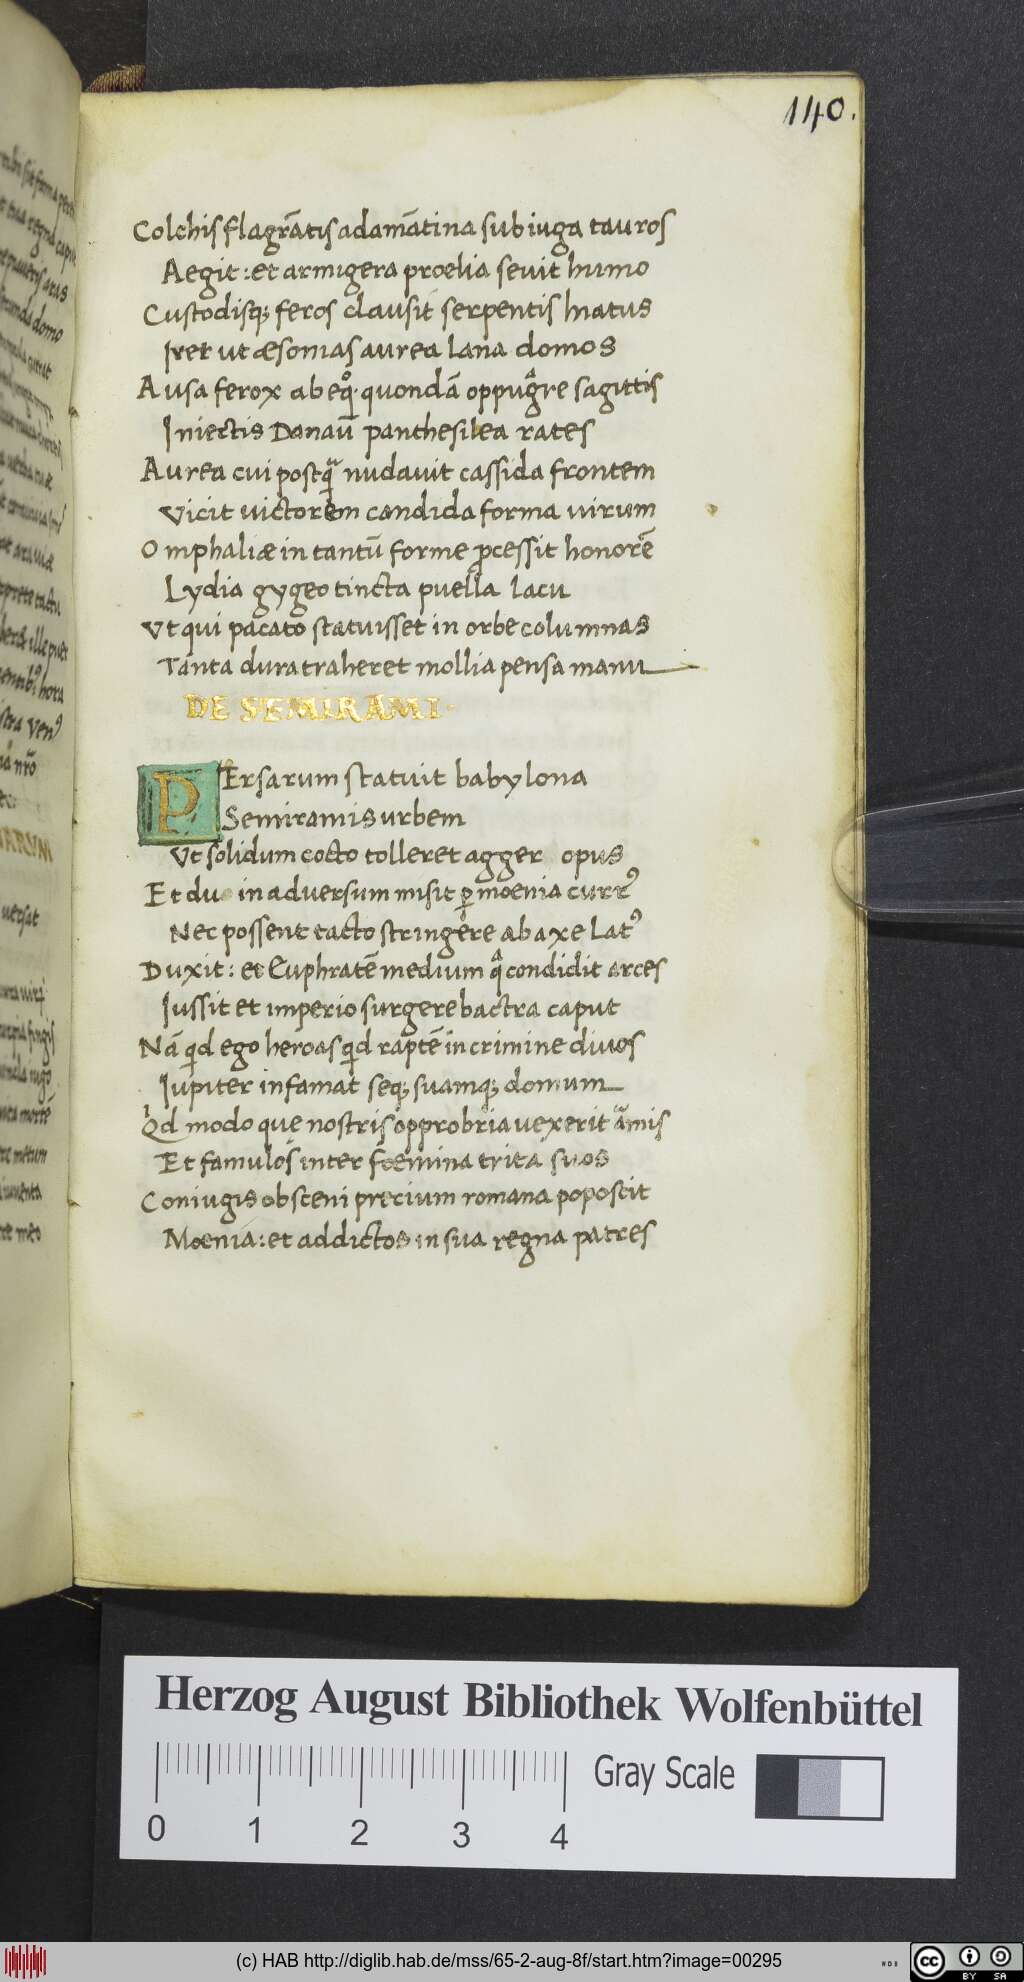 140.
Colchis flagrātis adamātina sub iuga tauros
Aegit : et armigera proelia sevit humo
Custodisq; feros clausit serpentis hiatus
Iret ut æsonias aurea lana domos
Ausa ferox ab eq̊ · quondā oppugre sagittis
Iniectis Danaū panthesilea rates
Aurea cui postq̃ nudavit cassida frontem
Vicit victorem candida forma virum
Omphaliæ in tantū forme ꝓcessit honorē
Lydia gygeo tincta puella lacu
Ut qui pacato statuisset in orbe columnas
Tanta dura traheret mollia pensa manu
DE SEMIRAMI.
PErsarum statuit babylona
Semiramis urbem
Ut solidum cocto tolleret agger opus
Et du in adversum misit ꝑ moenia currꝰ
Nec possent tacto stringere ab axe latꝰ
Duxit : et Euphratē medium q̃ condidit arces
Iussit et imperio surgere bactra caput
Nā qid ego heroas qid raptē in crimine divos
Iupiter infamat seq; suamq; domum
Qd modo que nostris opprobria vexerit āmis
Et famulos inter foemina trita suos
Coniugis obsceni precium romana poposcit
Moenia : et addictos in sua regna patres
Herzog August Bibliothek Wolfenbüttel
0 1 2 3 4
Gray Scale
(c) HAB http://diglib.hab.de/mss/65-2-aug-8f/start.htm?image=00295
cc BY SA